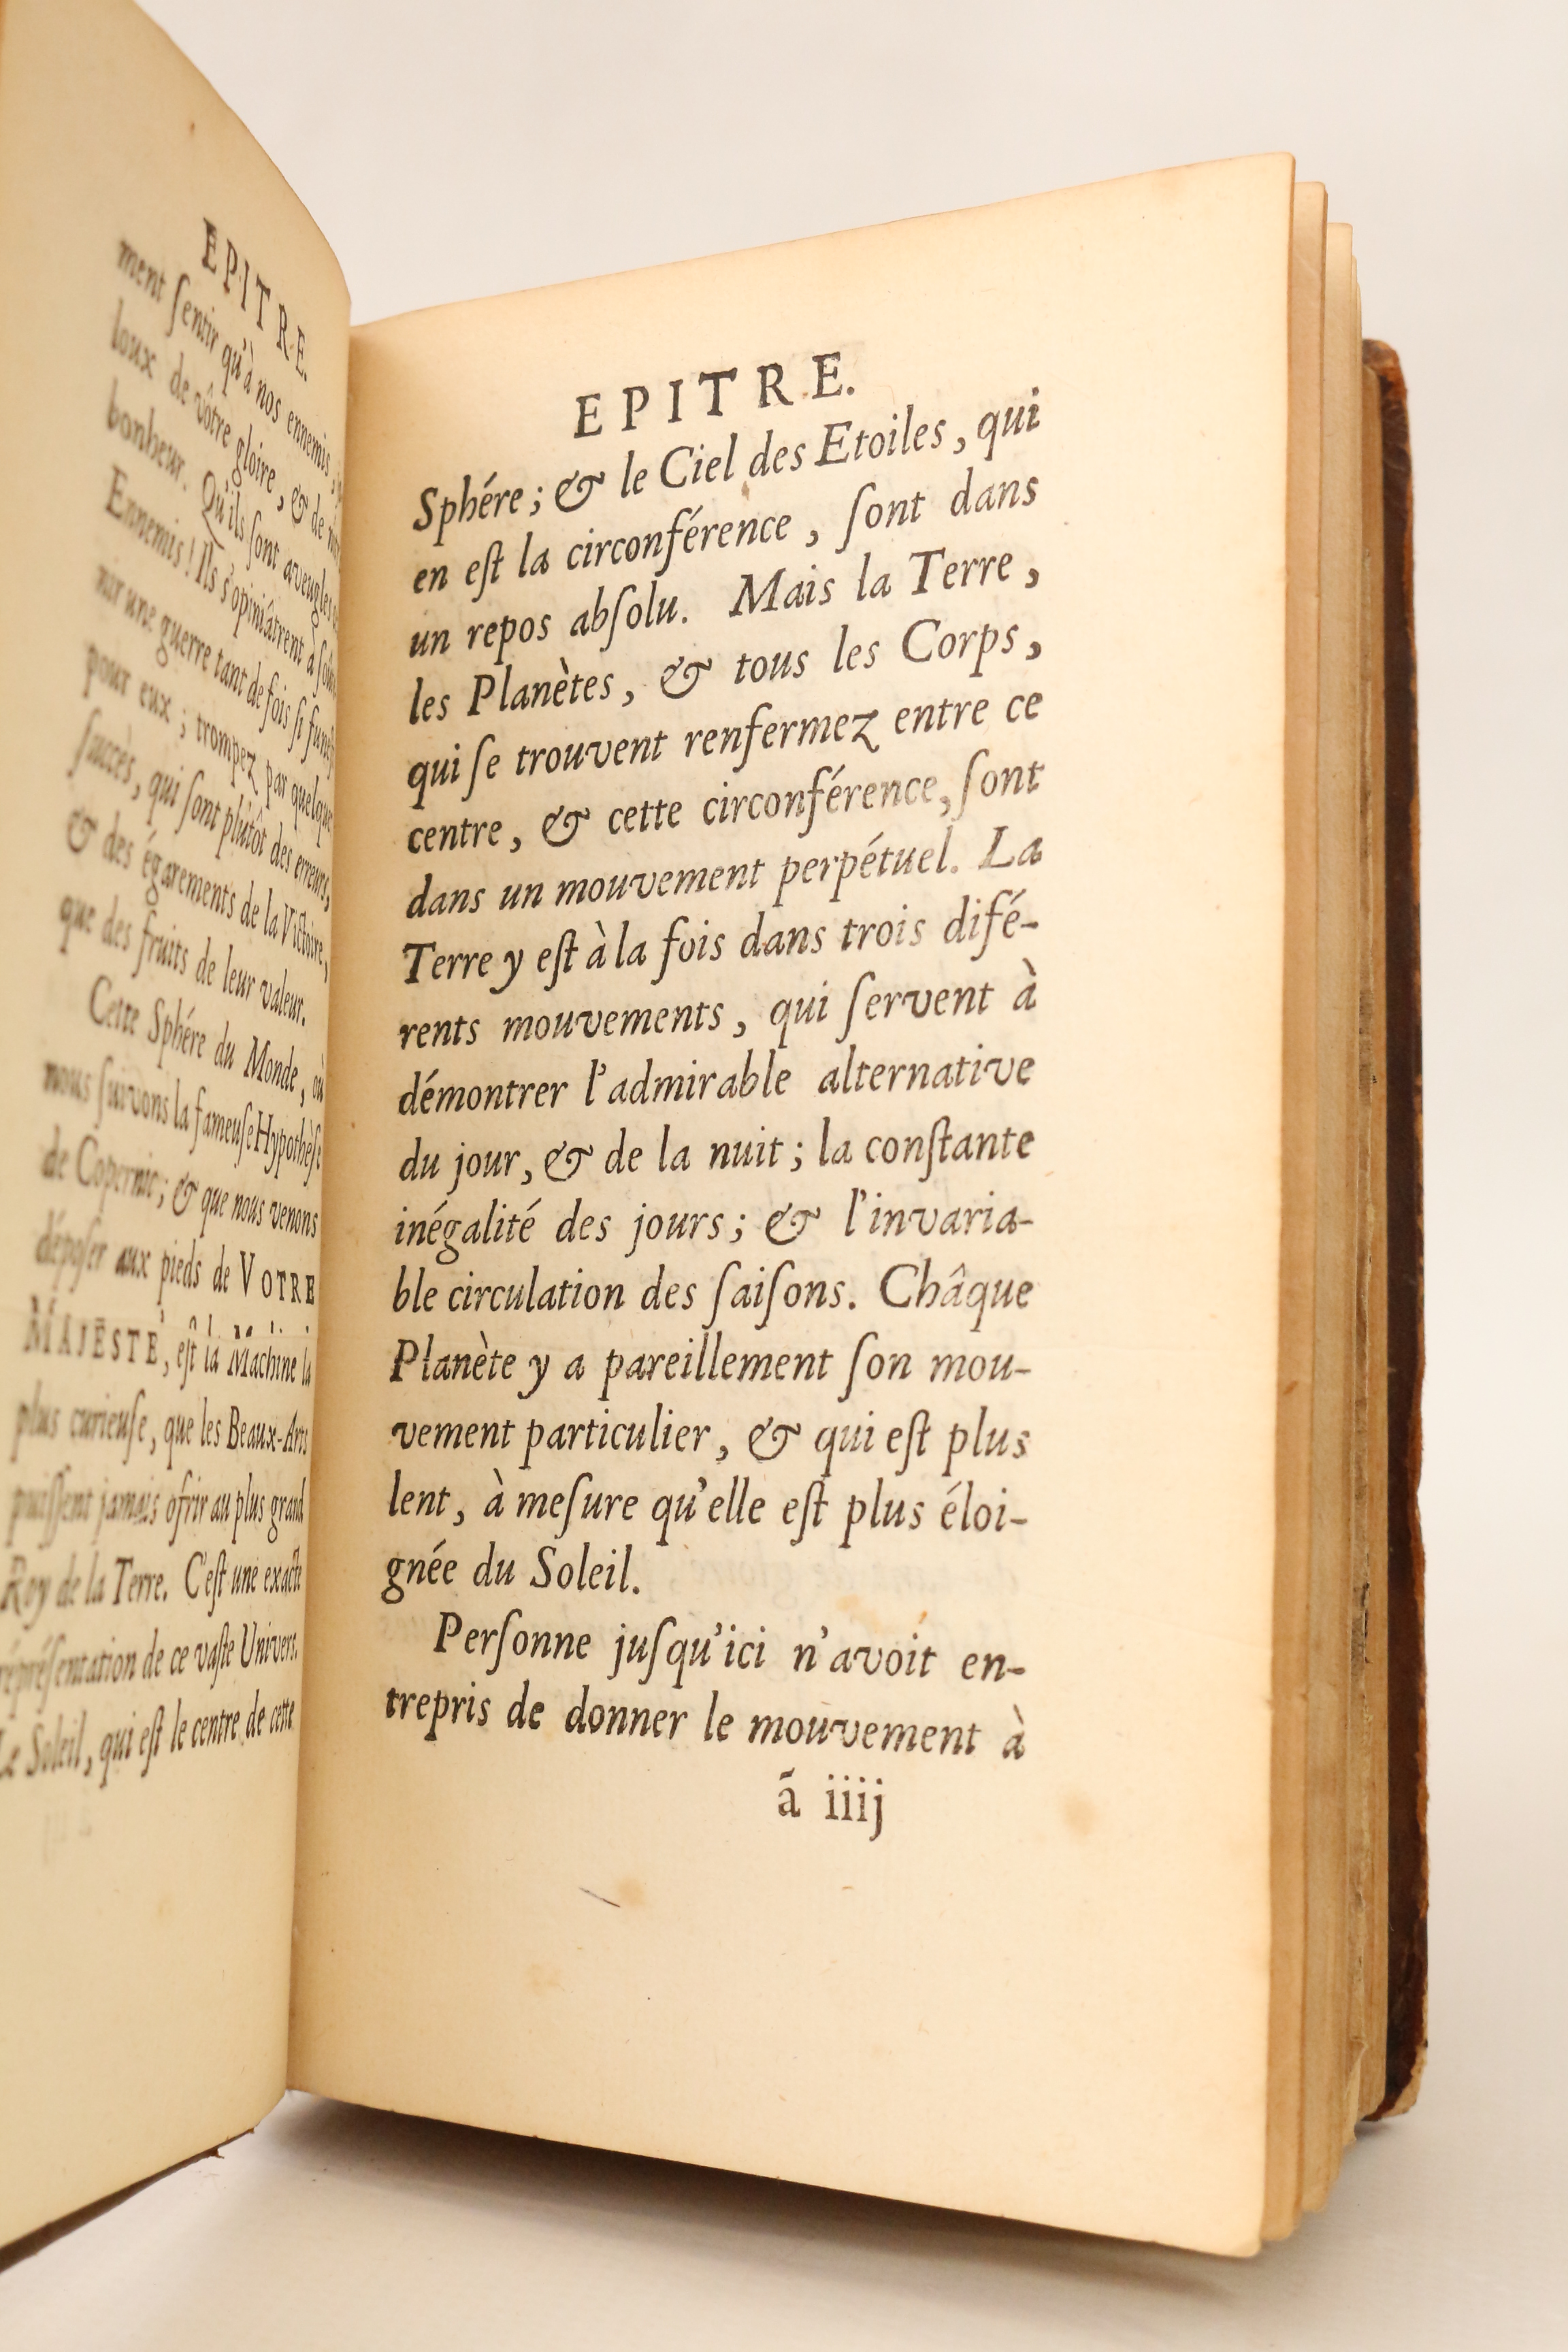 EPITRE.
ment ſentir qu'à nos ennemis,
loux de vôtre gloire, & de
bonheur. Qu'ils ſont aveugles
Ennemis! Ils s'opiniâtrent à
nir une guerre tant de fois ſi
pour eux; trompez par quelque
ſuccès, qui ſont plûtôt des erreurs,
& des égarements de la Victoire,
que des fruits de leur valeur.
Cette Sphére du Monde, où
nous ſuivons la fameuſe Hypothèſe
de Copernic; & que nous venons
dépoſer aux pieds de VOTRE
MAJESTÉ, eſt la Machine la
plus curieuſe, que les Beaux-Arts
puiſſent jamais ofrir au plus grand
Roy de la Terre. C'eſt une exacte
répréſentation de ce vaſte Univers.
Le Soleil, qui eſt le centre de cette
EPITRE.
Sphére; & le Ciel des Etoiles, qui
en eſt la circonférence, ſont dans
un repos abſolu. Mais la Terre,
les Planètes, & tous les Corps,
qui ſe trouvent renfermez entre ce
centre, & cette circonférence, ſont
dans un mouvement perpétuel. La
Terre y eſt à la fois dans trois difé-
rents mouvements, qui ſervent à
démontrer l'admirable alternative
du jour, & de la nuit; la conſtante
inégalité des jours; & l'invaria-
ble circulation des ſaiſons. Châque
Planète y a pareillement ſon mou-
vement particulier, & qui eſt plus
lent, à meſure qu'elle eſt plus éloi-
gnée du Soleil.
Perſonne juſqu'ici n'avoit en-
trepris de donner le mouvement à
ã iiij